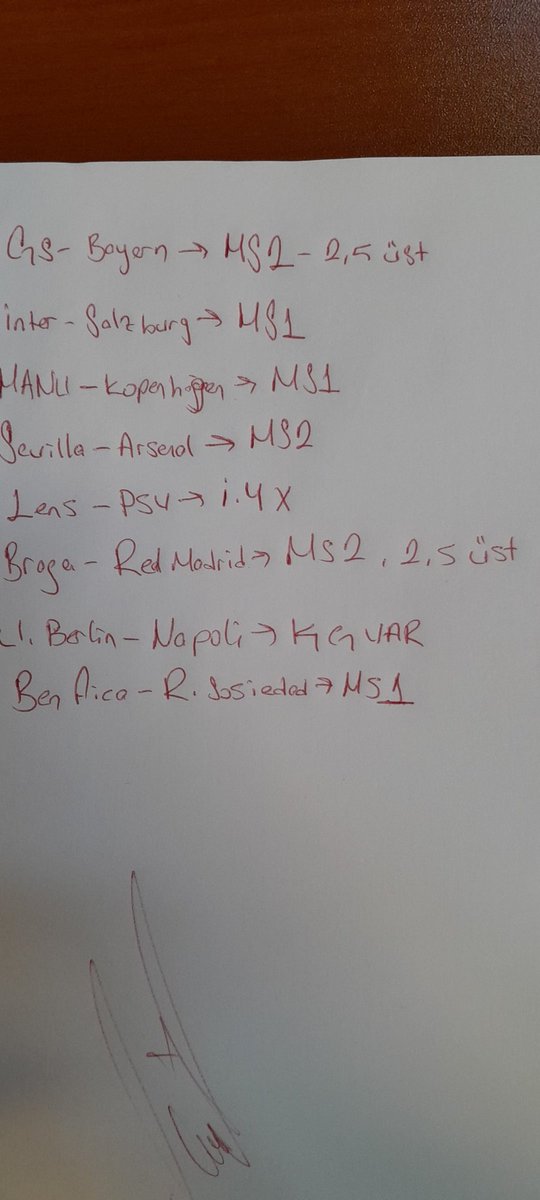 GS- Bayern → MS2 - 2,5 üst
inter - Salzburg → MS1
MANU - Kopenhagen → MS1
Sevilla - Arsenal → MS2
Lens - PSV → i.Y X
Braga - Real Madrid → MS2 , 2,5 üst
U. Berlin - Napoli → KG VAR
Benfica - R. Sosiedad → MS1